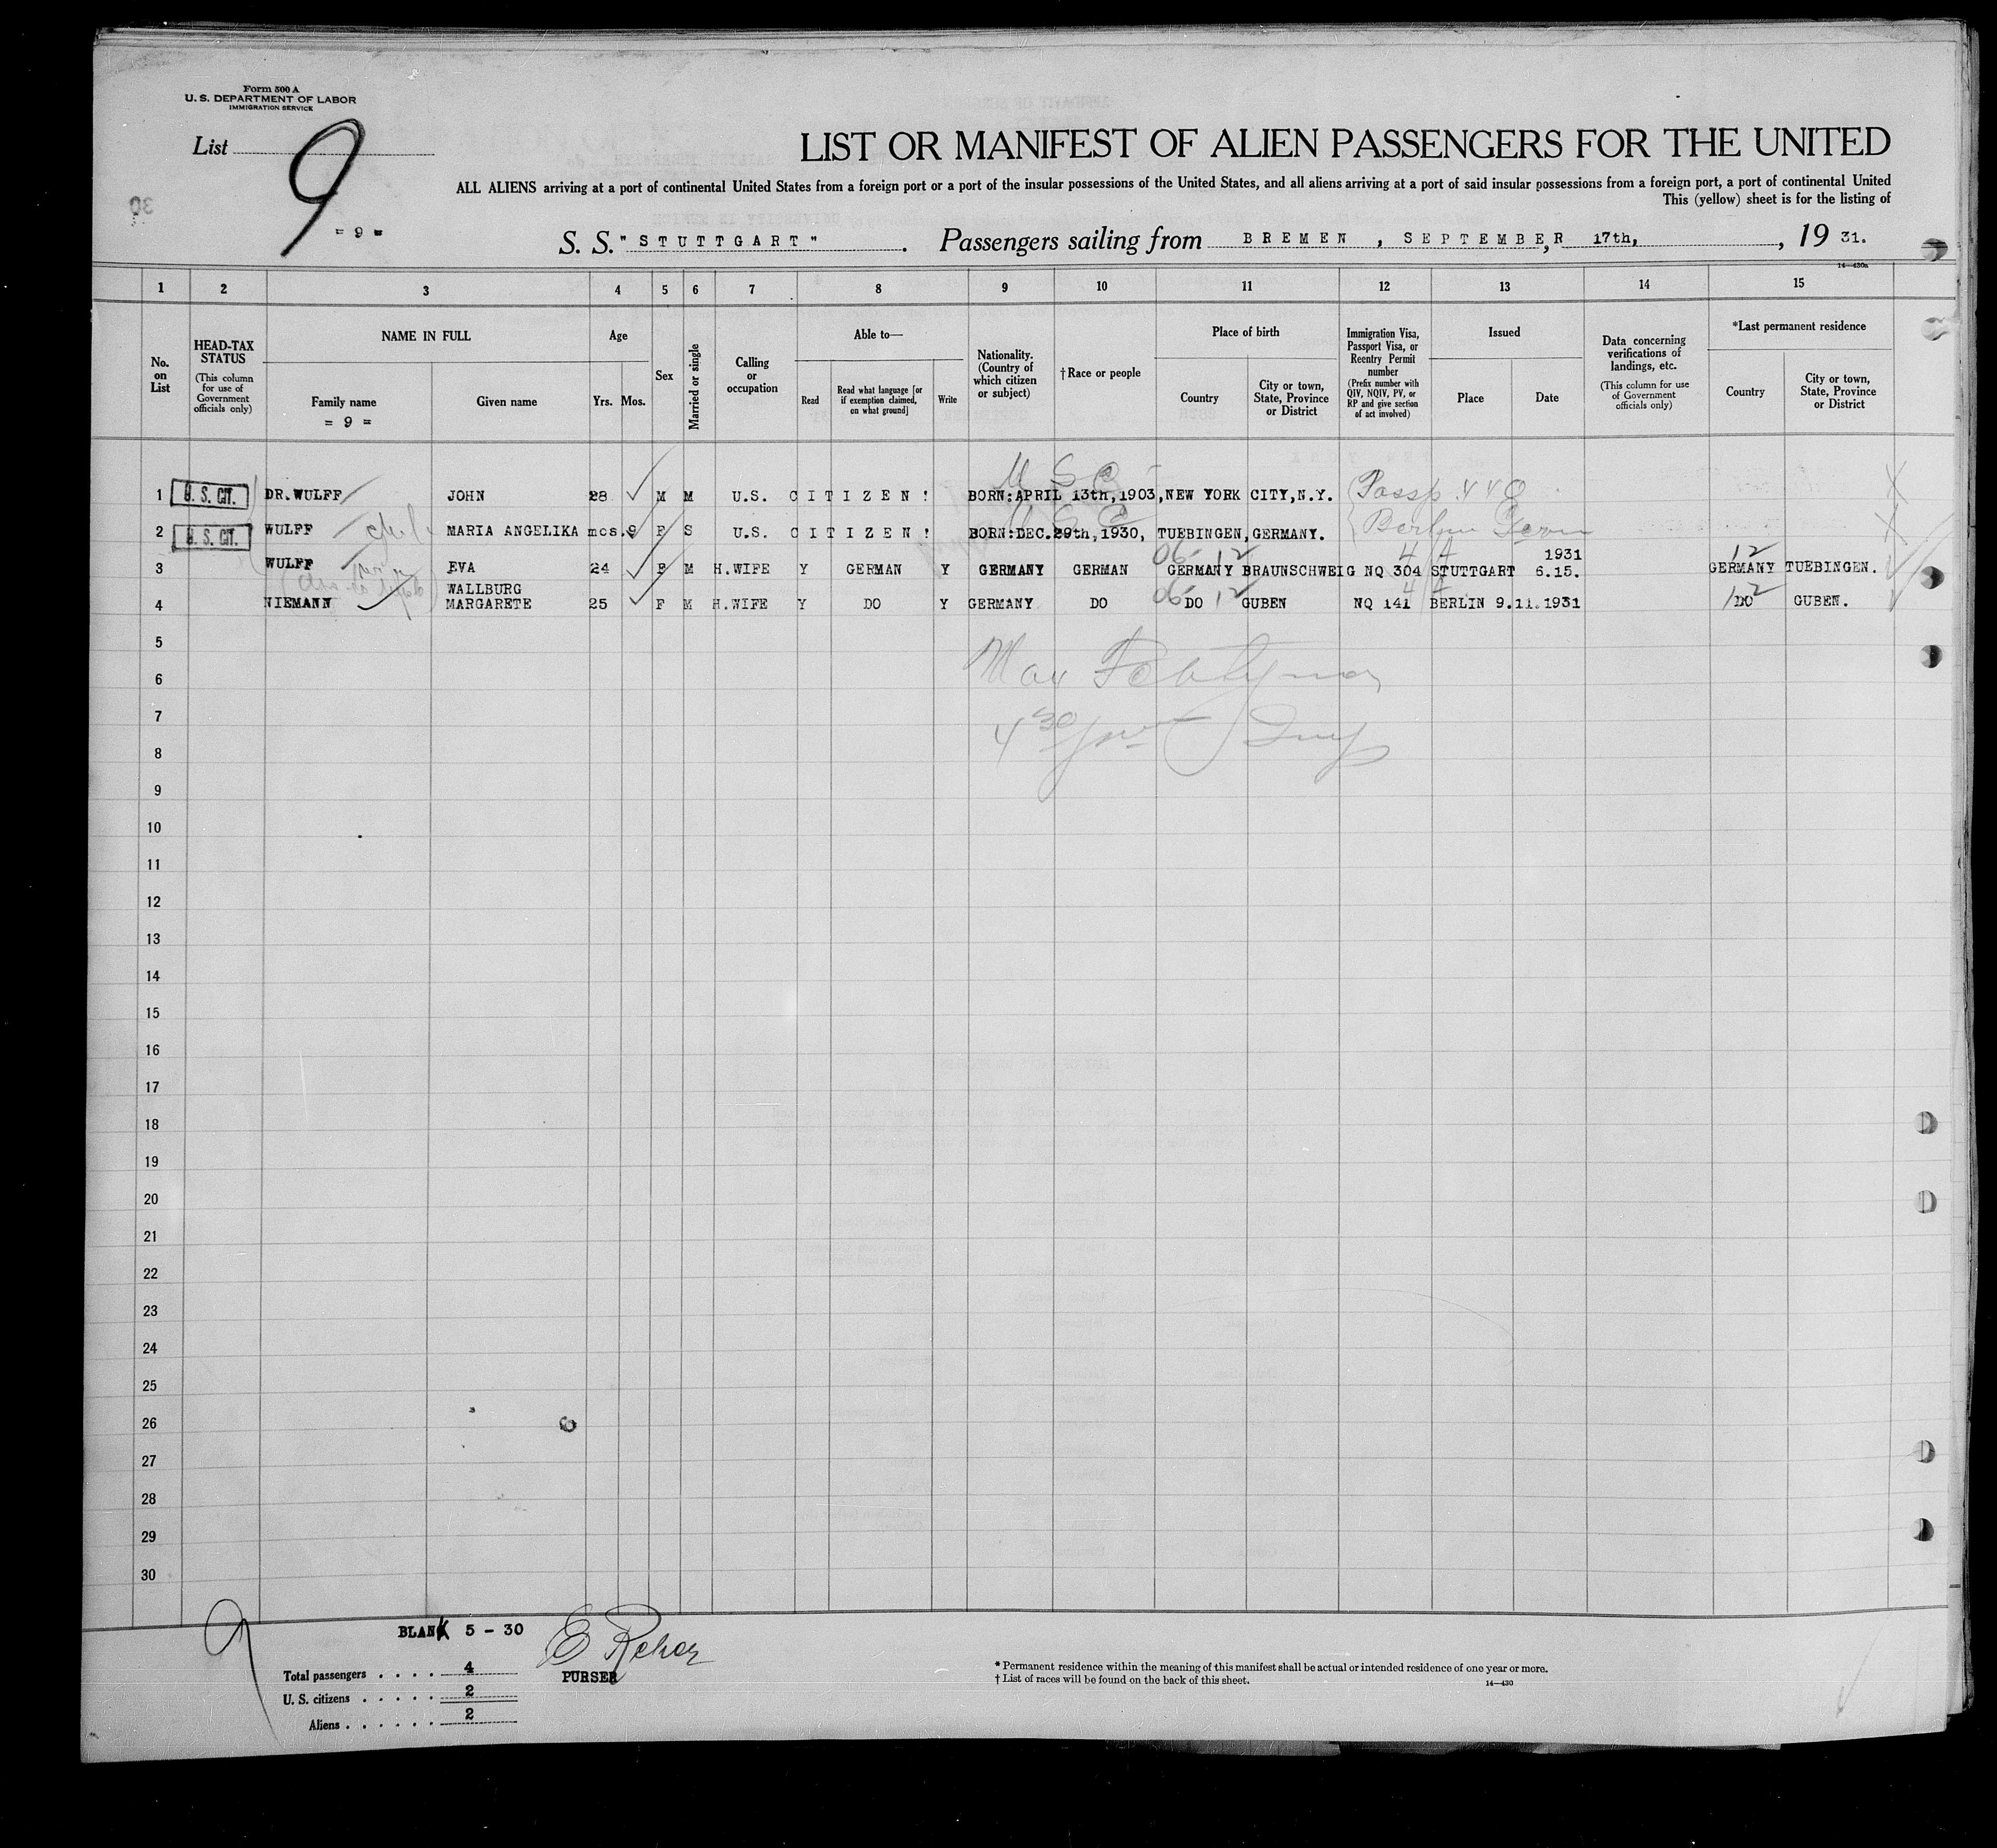 Form 500 A
U. S. DEPARTMENT OF LABOR
IMMIGRATION SERVICE
List 9
= 9 =
LIST OR MANIFEST OF ALIEN PASSENGERS FOR THE UNITED
ALL ALIENS arriving at a port of continental United States from a foreign port or a port of the insular possessions of the United States, and all aliens arriving at a port of said insular possessions from a foreign port, a port of continental United
This (yellow) sheet is for the listing of
30
S. S. "STUTTGART" . Passengers sailing from BREMEN , SEPTEMBER, 17th, , 19 31.
14—430a
1 2 3 4 5 6 7 8 9 10 11 12 13 14 15
No. on List
HEAD-TAX STATUS (This column for use of Government officials only)
NAME IN FULL
Family name
= 9 =
Given name
Age
Yrs. Mos.
Sex
Married or single
Calling or occupation
Able to—
Read
Read what language [or if exemption claimed, on what ground]
Write
Nationality. (Country of which citizen or subject)
†Race or people
Place of birth
Country
City or town, State, Province or District
Immigration Visa, Passport Visa, or Reentry Permit number (Prefix number with QIV, NQIV, PV, or RP and give section of act involved)
Issued
Place
Date
Data concerning verifications of landings, etc. (This column for use of Government officials only)
*Last permanent residence
Country
City or town, State, Province or District
U S C
1 U. S. CIT. DR. WULFF JOHN 28 M M U.S. CITIZEN! BORN:APRIL 13th,1903,NEW YORK CITY,N.Y. Passp. 448 X
U S C
2 U. S. CIT. WULFF MARIA ANGELIKA mos.9 F S U.S. CITIZEN! BORN:DEC.29th,1930, TUEBINGEN,GERMANY. Berlin Germ X
06- 12 4 A 1931 12
3 WULFF EVA 24 F M H.WIFE Y GERMAN Y GERMANY GERMAN GERMANY BRAUNSCHWEIG NQ 304 STUTTGART 6.15. GERMANY TUEBINGEN.
WALLBURG
06- 12 4 A 12
4 NIEMANN MARGARETE 25 F M H.WIFE Y DO Y GERMANY DO DO GUBEN NQ 141 BERLIN 9.11.1931 DO GUBEN.
5
6
7
4 30 pm
8
9
10
11
12
13
14
15
16
17
18
19
20
21
22
23
24
25
26
27
28
29
30
9
BLANK 5 - 30
PURSER
Total passengers . . . . 4
U. S. citizens . . . . . 2
Aliens . . . . . . 2
* Permanent residence within the meaning of this manifest shall be actual or intended residence of one year or more.
† List of races will be found on the back of this sheet.
14—430